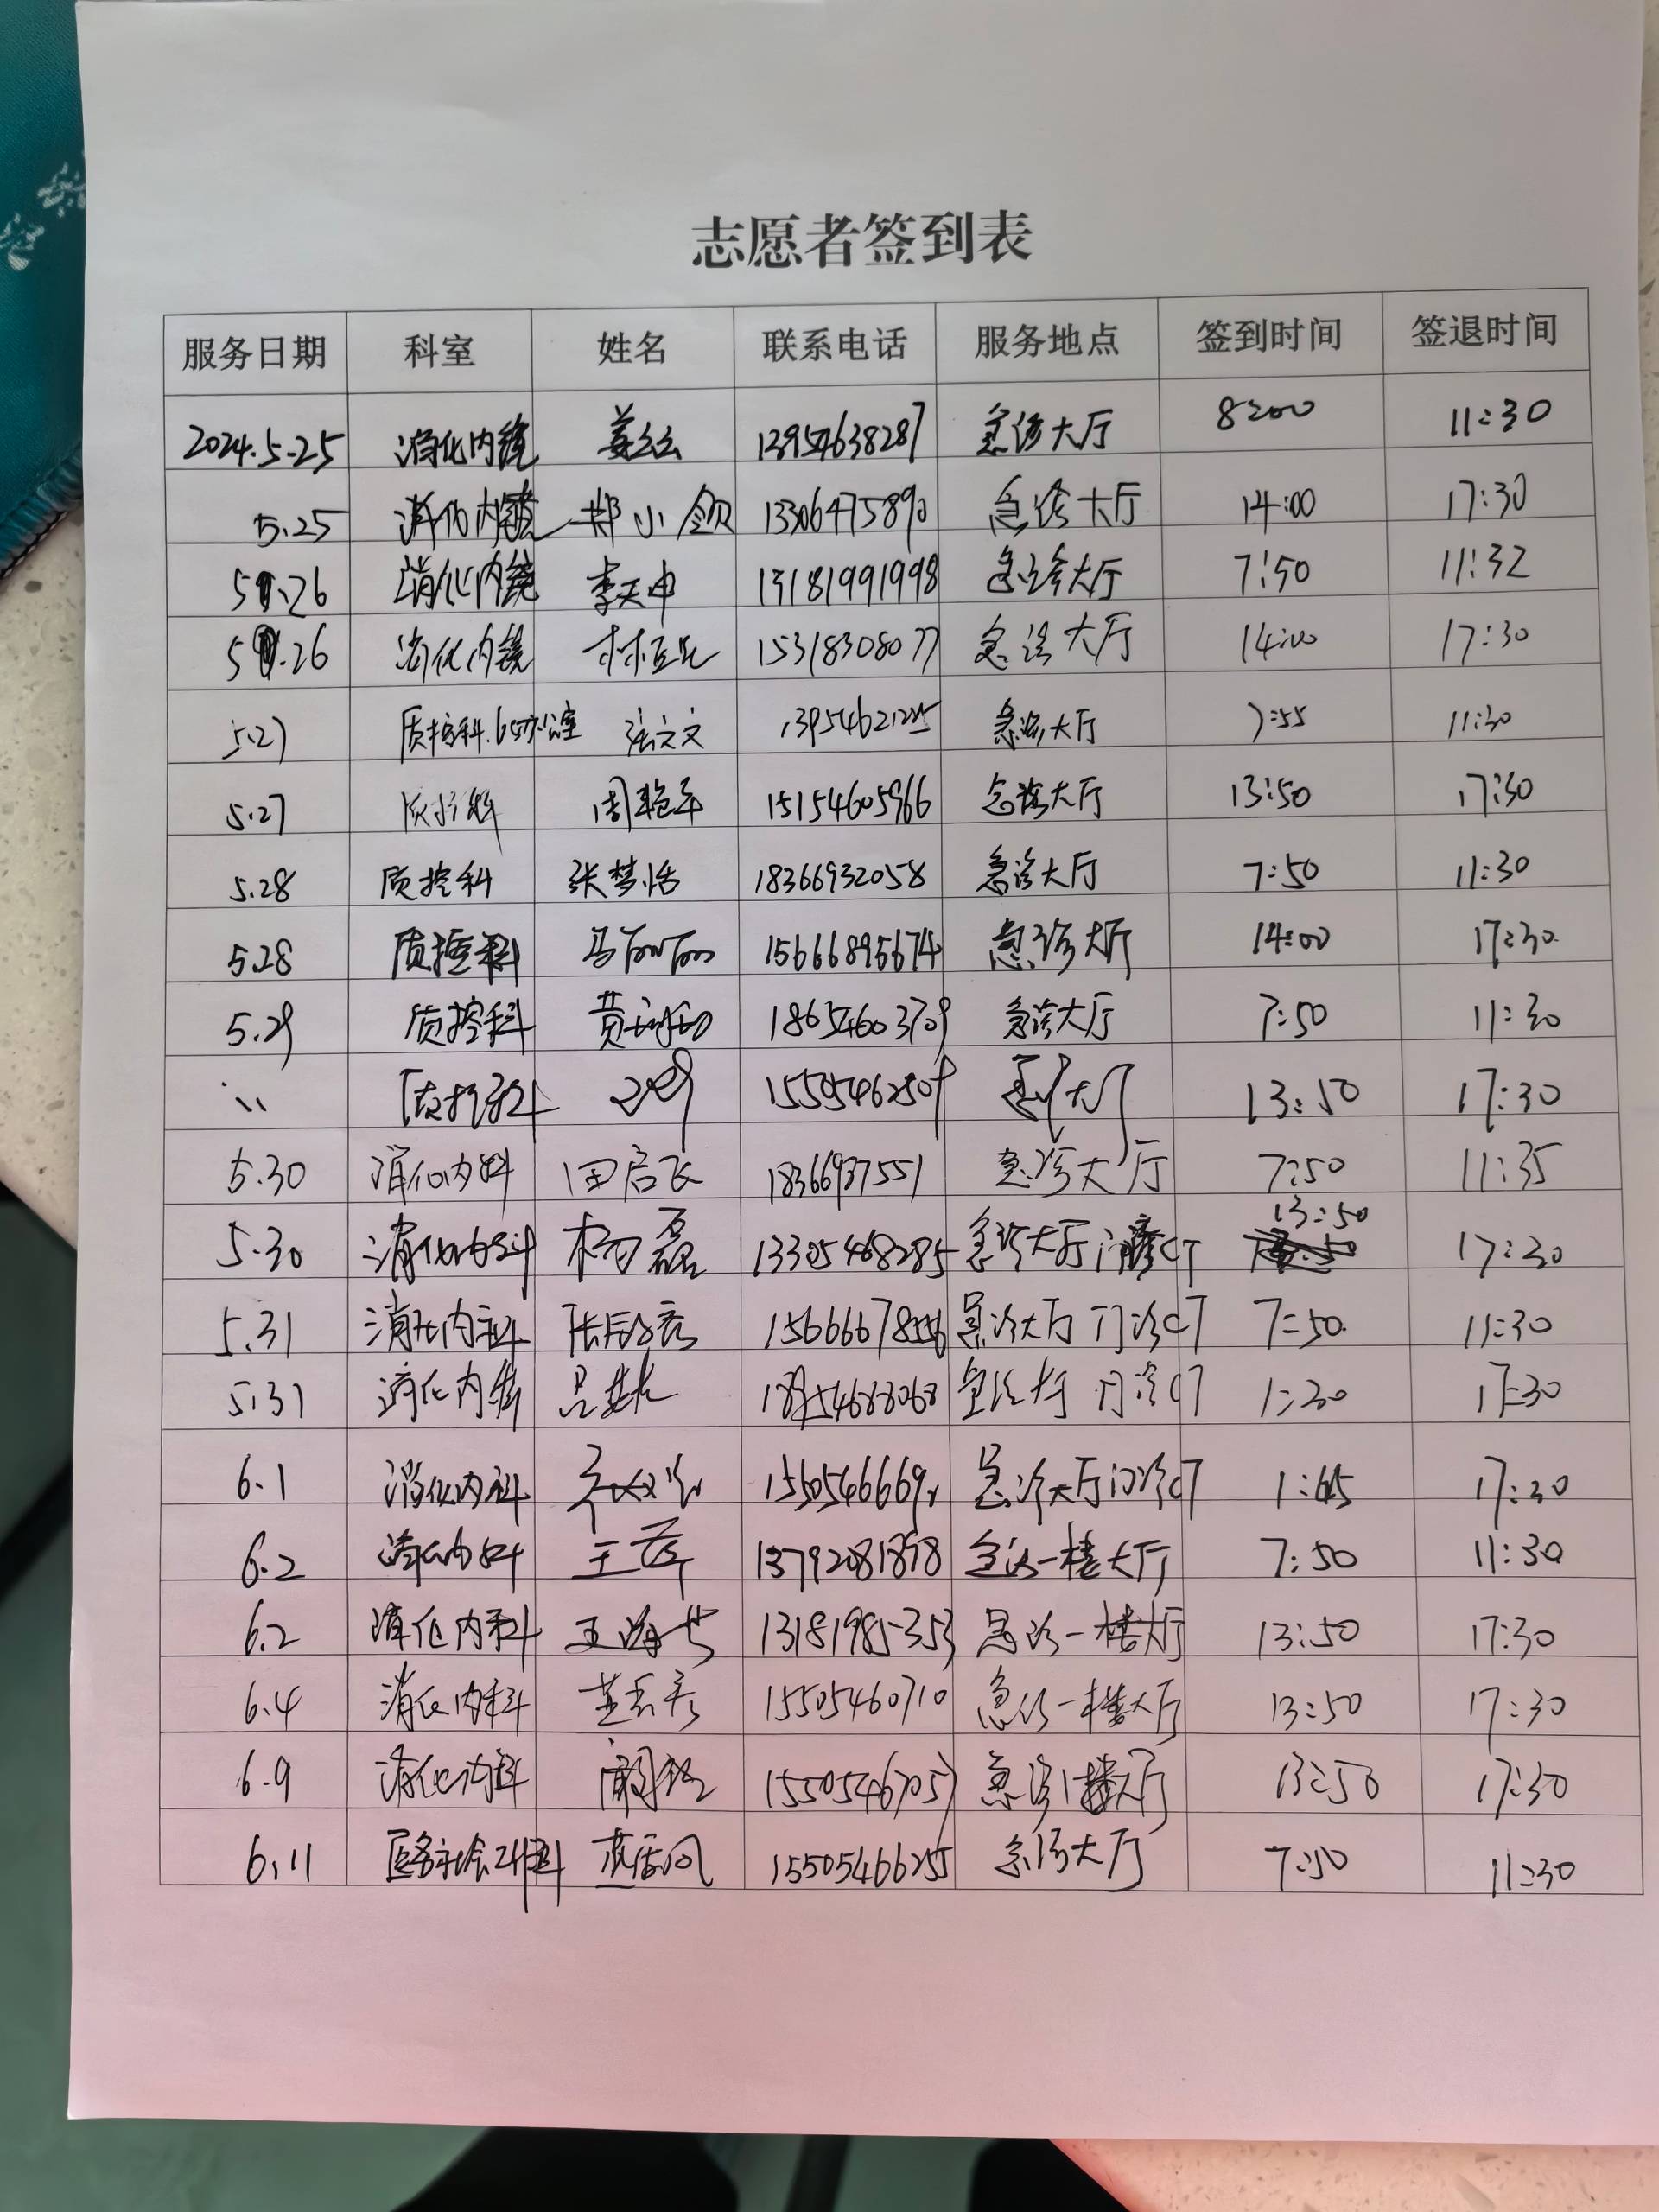 志愿者签到表
服务日期 科室 姓名 联系电话 服务地点 签到时间 签退时间
2024.5.25 消化内镜 姜幺幺 13954638287 急诊大厅 8:00 11:30
5.25 消化内镜 郑小领 13306475890 急诊大厅 14:00 17:30
5.26 消化内镜 李天申 13181991998 急诊大厅 7:50 11:32
5.26 消化内镜 15318308077 急诊大厅 14:00 17:30
5.27 质控科 张文文 急诊大厅 7:55 11:30
5.27 质控科 周艳军 15154605966 急诊大厅 13:50 17:30
5.28 质控科 张梦恬 18366932058 急诊大厅 7:50 11:30
5.28 质控科 马丽丽 15666895674 急诊大厅 14:00 17:30
5.29 质控科 18654603709 急诊大厅 7:50 11:30
〃 质控科 急诊大厅 13:50 17:30
5.30 消化内科 田启飞 1836697551 急诊大厅 7:50 11:35
5.30 消化内科 杨磊 13305468285 急诊大厅 门诊CT 13:50 17:30
5.31 消化内科 急诊大厅 门诊CT 7:50 11:30
5.31 消化内科 急诊大厅 门诊CT 1:30 17:30
6.1 消化内科 急诊大厅 门诊CT 17:30
6.2 消化内科 王萍 急诊一楼大厅 7:50 11:30
6.2 消化内科 王海芸 13181985353 急诊一楼大厅 13:50 17:30
6.4 消化内科 15505460710 急诊一楼大厅 13:50 17:30
6.9 消化内科 15505467057 急诊1楼大厅 13:50 17:30
6.11 医务社会工作科 15505466255 急诊大厅 7:50 11:30